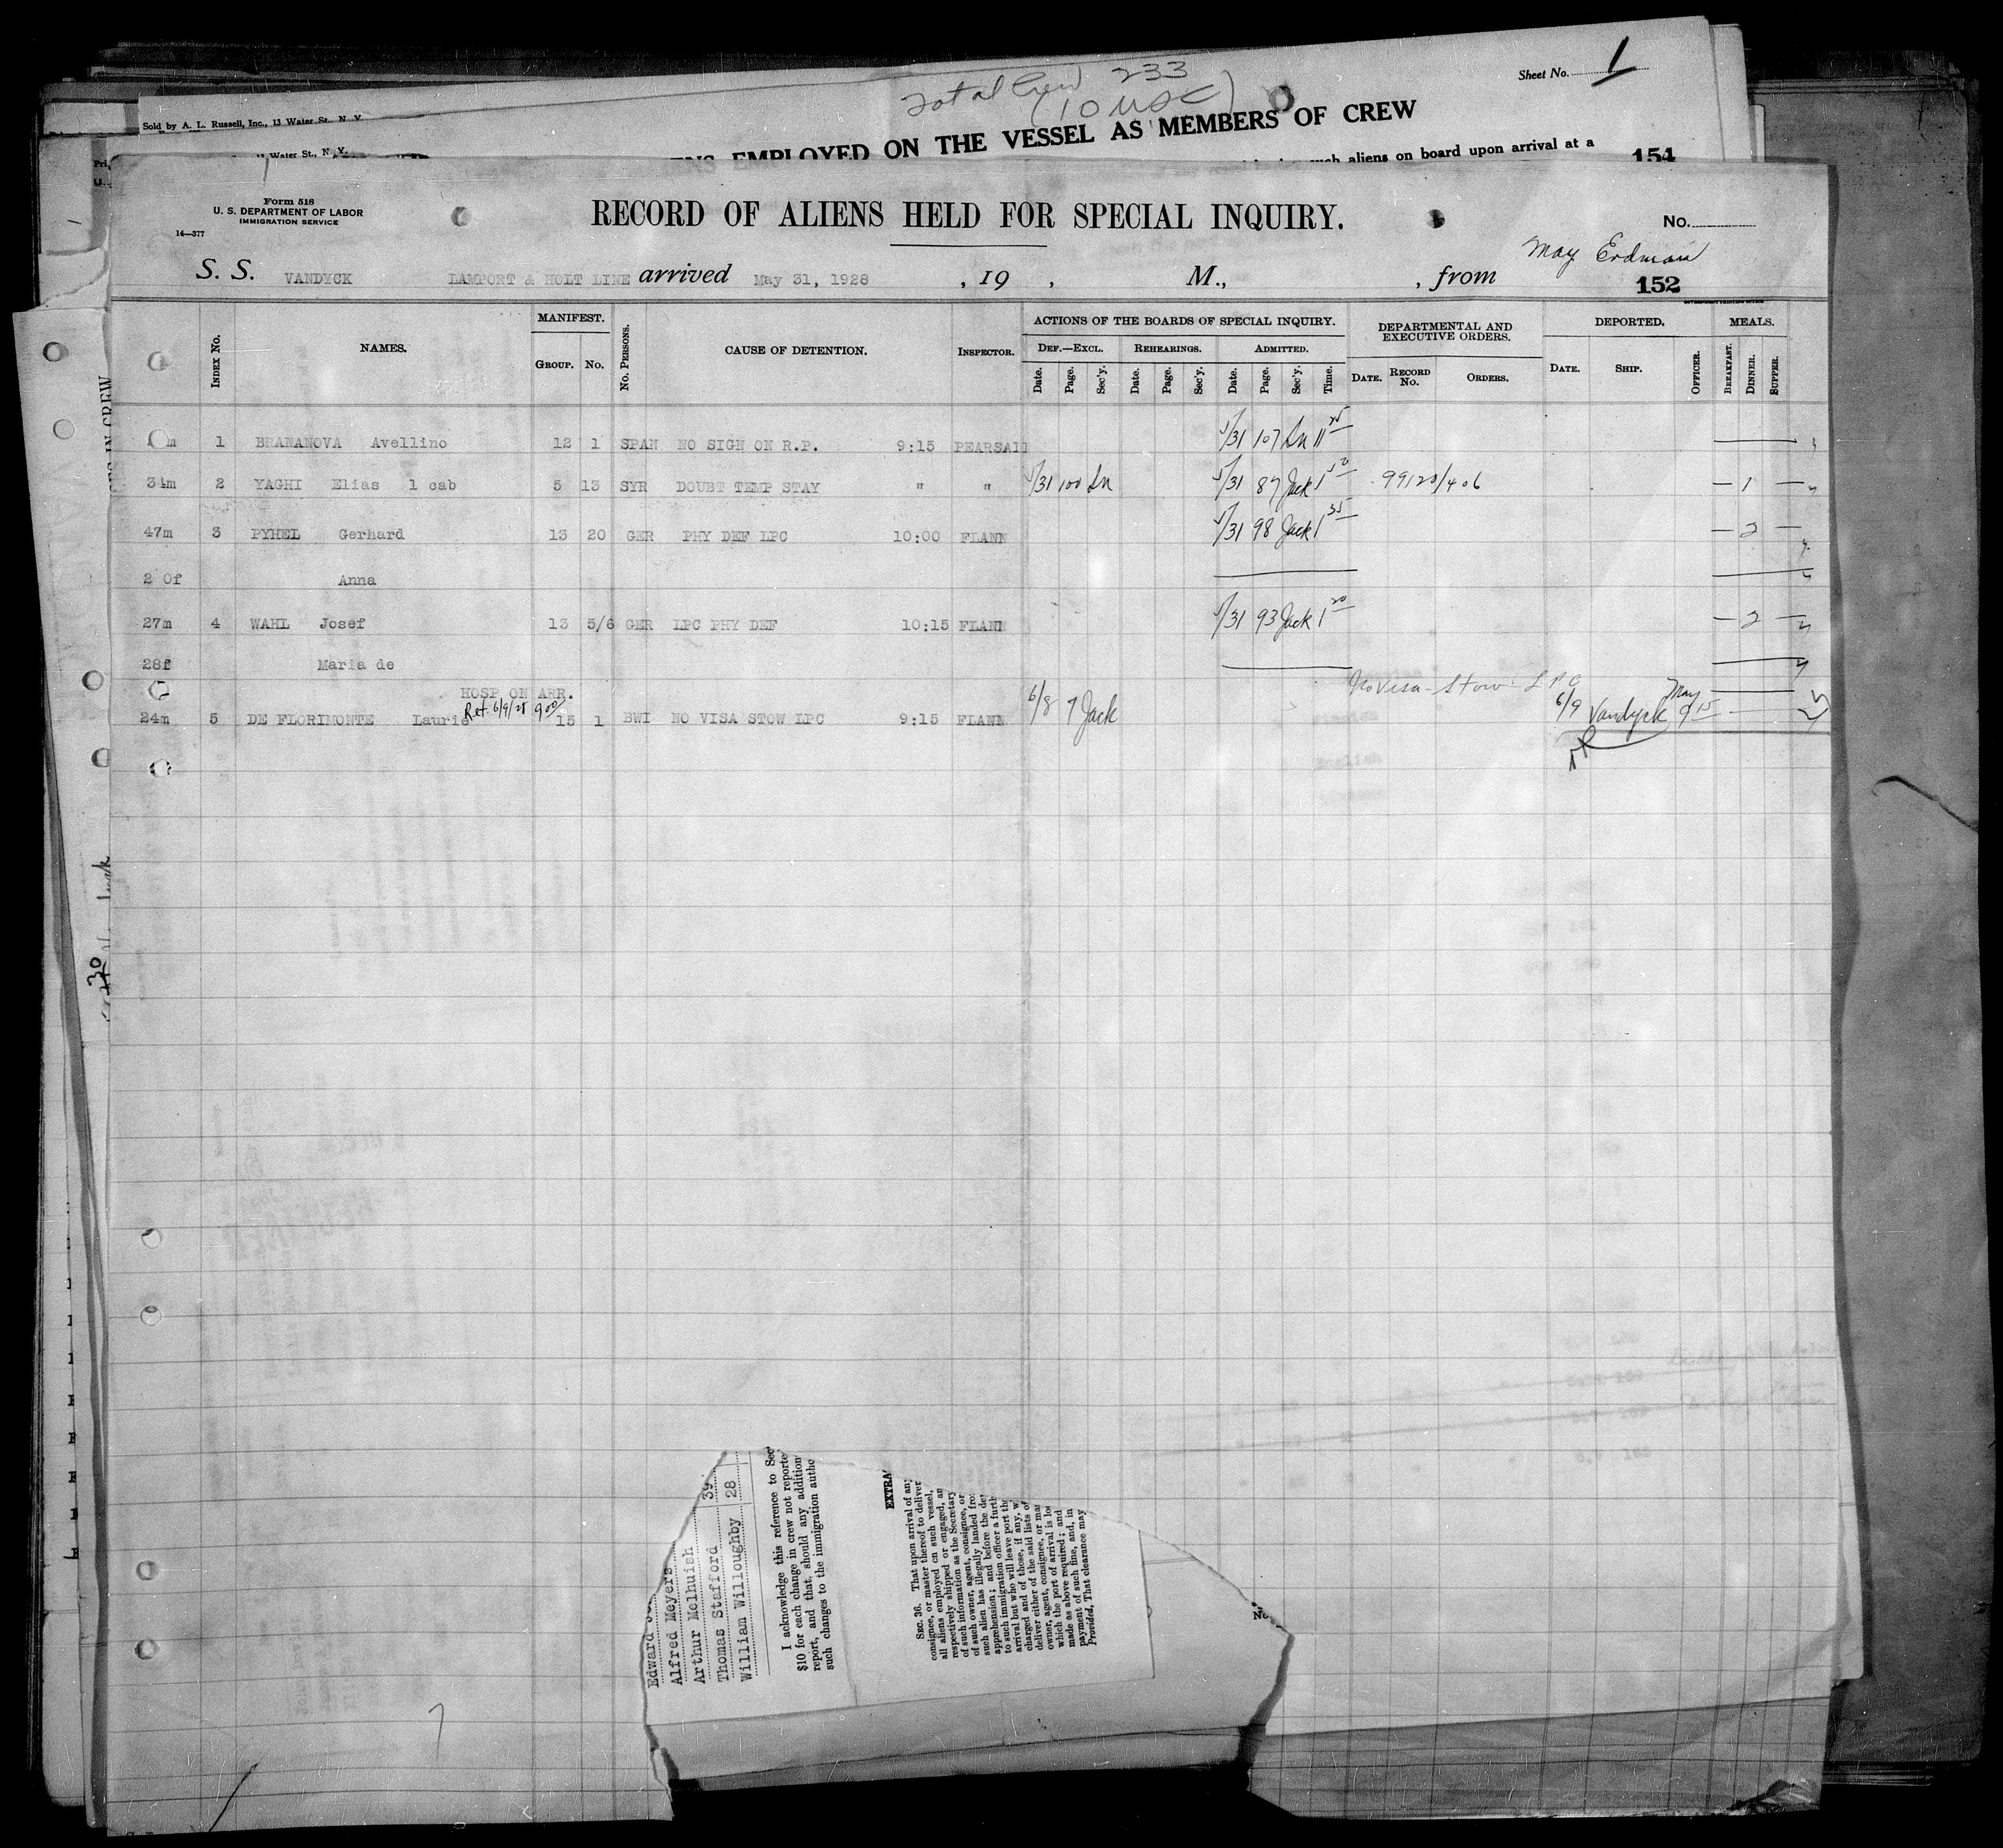 Sheet No. 1
Total Crew 233
(10 USC)
Sold by A. L. Russell, Inc., 13 Water St., N. Y.
EMPLOYED ON THE VESSEL AS MEMBERS OF CREW
Water St., N. Y.
such aliens on board upon arrival at a
154
Form 518
U. S. DEPARTMENT OF LABOR
IMMIGRATION SERVICE
14—377
RECORD OF ALIENS HELD FOR SPECIAL INQUIRY.
No.
May Erdman
S. S. VANDYCK LAMPORT & HOLT LINE arrived May 31, 1928, 19 , M., , from
152
INDEX No.
NAMES.
MANIFEST.
GROUP. No.
No. PERSONS.
CAUSE OF DETENTION.
INSPECTOR.
ACTIONS OF THE BOARDS OF SPECIAL INQUIRY.
DEF.—EXCL. REHEARINGS. ADMITTED.
Date. Page. Sec'y. Date. Page. Sec'y. Date. Page. Sec'y. Time.
DEPARTMENTAL AND
EXECUTIVE ORDERS.
DATE. RECORD No. ORDERS.
DEPORTED.
DATE. SHIP. OFFICER.
MEALS.
BREAKFAST. DINNER. SUPPER.
m 1 BRANANOVA Avellino 12 1 SPAN NO SIGN ON R.P. 9:15 PEARSALL 5/31 107 Sn 11 25
34m 2 YAGHI Elias 1 cab 5 13 SYR DOUBT TEMP STAY " " 5/31 100 Sn 5/31 87 Jack 1 50 99120/406 — 1 —
47m 3 PYHEL Gerhard 13 20 GER PHY DEF LPC 10:00 FLANN 5/31 98 Jack 1 35 — 2 —
2 0f Anna
27m 4 WAHL Josef 13 5/6 GER LPC PHY DEF 10:15 FLANN 5/31 93 Jack 1 20 — 2 —
28f Maria de
HOSP ON ARR. No visa - Stow - L P C
Ret. 6/9/28 9 00
24m 5 DE FLORIMONTE Laurie 15 1 BWI NO VISA STOW LPC 9:15 FLANN 6/8 7 Jack 6/9 Vandyck May 9 15
CREW
30
Edward
Alfred Meyers
Arthur Melhuish 39
Thomas Stafford
William Willoughby 28
I acknowledge this reference to Sec
$10 for each change in crew not reporte
report, and that, should any addition
such changes to the immigration autho
EXTRA
SEC. 36. That upon arrival of any
consignee, or master thereof to deliver
all aliens employed on such vessel,
respectively shipped or engaged, an
of such information as the Secretary
of such owner, agent, consignee, or
such alien has illegally landed fro
apprehension; and before the de
to such immigration officer a furth
arrival but who will leave port the
charged and of those, if any, w
deliver either of the said lists o
owner, agent, consignee, or mas
which the port of arrival is loc
made as above required; and
payment of such fine, and, in
Provided, That clearance may
No